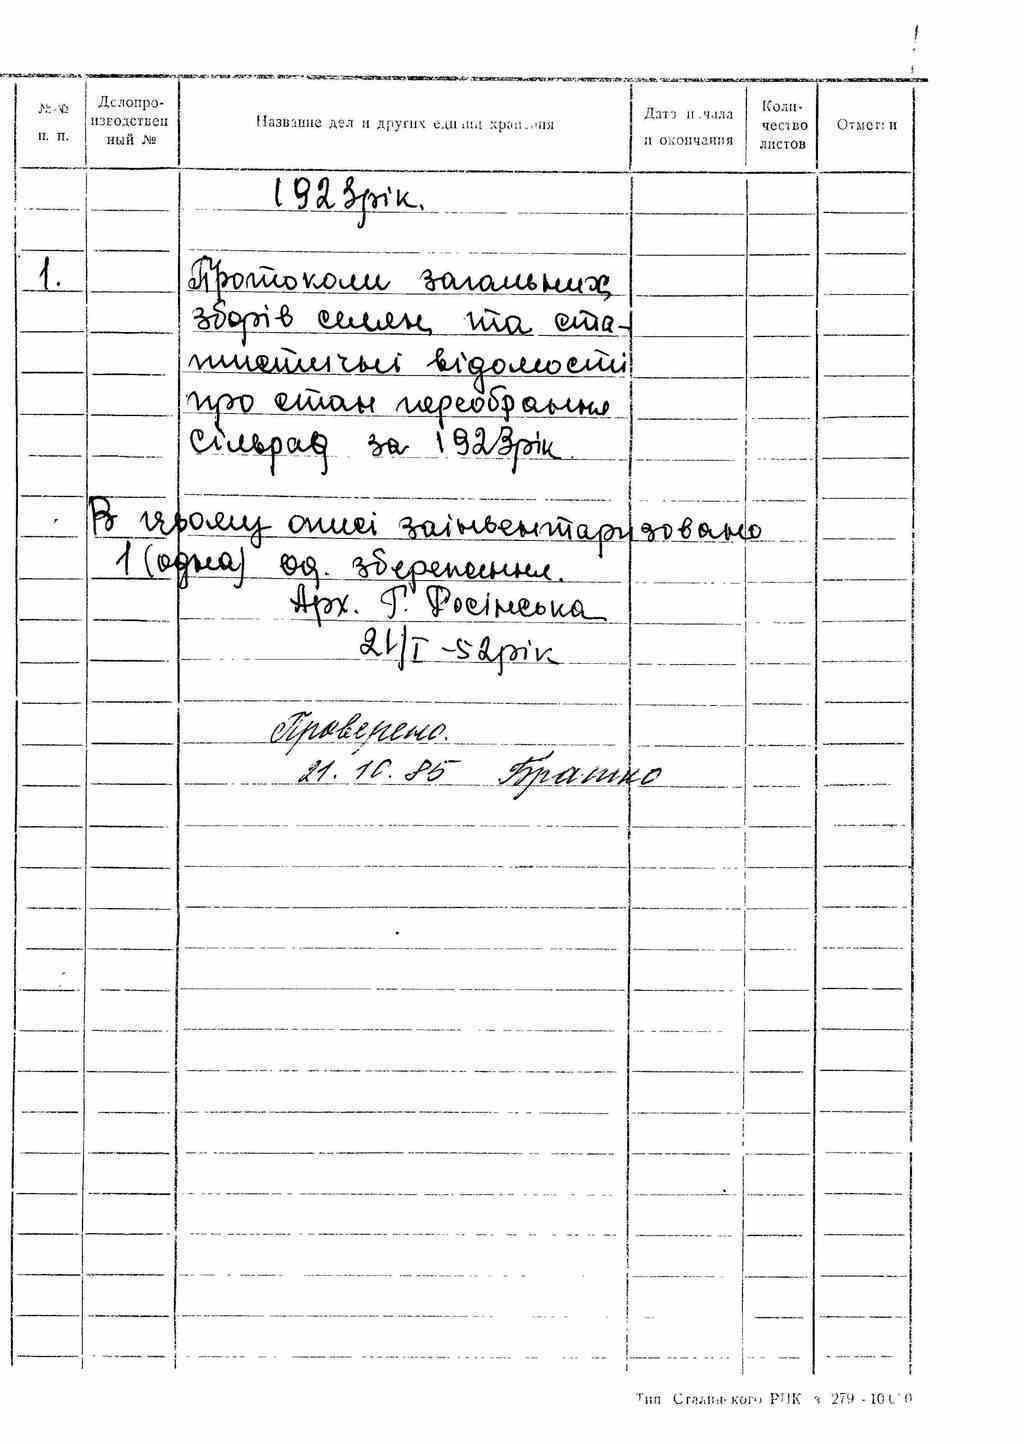 №№ п. п.
Делопроизводствен ный №
Название дел и других единиц хранения
Дата начала и окончания
Количество листов
Отметки
1923 рік.
1. Протоколи загальних
зборів селян та ста-
тистичні відомості
про стан переобрання
сільрад за 1923 рік
В цьому описі заінвентаризовано
1 (одна) од. збереження.
Арх. Г. Росінська
21/I -52 рік
Проверено.
21.10.85 Брашко
Тип РПК з 279 -